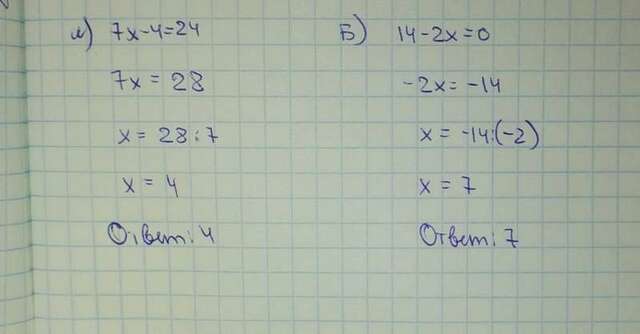 А) 7x-4=24
7x = 28
x = 28:7
x = 4
Ответ: 4
Б) 14-2x=0
-2x = -14
x = -14:(-2)
x = 7
Ответ: 7